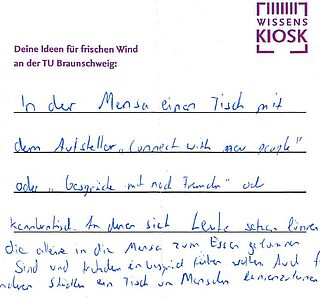 WISSENS
KIOSK
Deine Ideen für frischen Wind
an der TU Braunschweig:
In der Mensa einen Tisch mit
dem Aufsteller „Connect with new people"
oder „Gespräche mit
An denen sich Leute setzen können
die alleine in die Mensa zum Essen gekommen
sind und trotzdem ein Gespräch führen wollen. Auch f
anderen ein Tisch um Menschen kennenzulernen